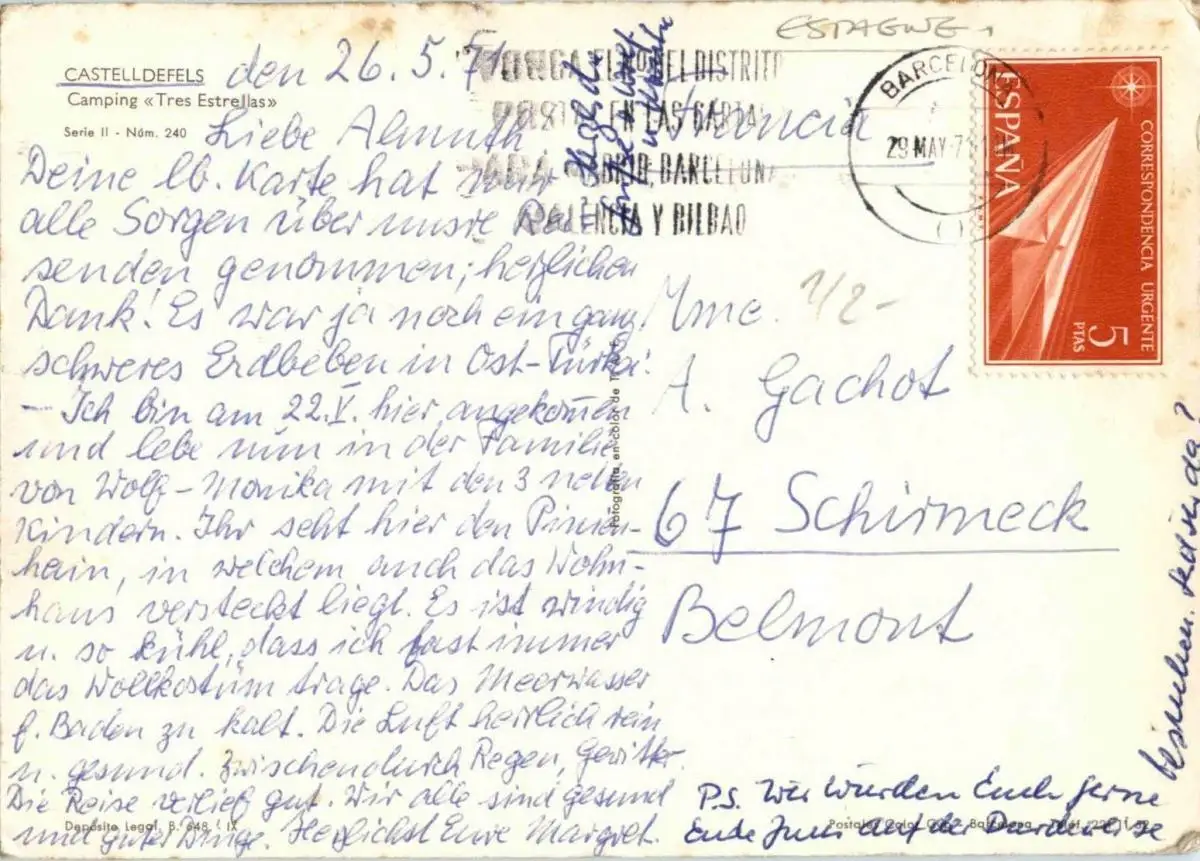 CASTELLDEFELS
Camping «Tres Estrellas»
Serie II - Núm. 240
den 26. 5. 71
Liebe Almuth
Deine lb. Karte hat mir
alle Sorgen über unsre
senden genommen; herzlichen
Dank! Es war ja noch ein ganz
schweres Erdbeben in Ost-Türkei.
– Ich bin am 22.V. hier angekommen
und lebe nun in der Familie
von Wolf-Monika mit den 3 netten
Kindern. Ihr seht hier den Pinien-
hain, in welchem auch das Wohn-
haus versteckt liegt. Es ist windig
u. so kühl, dass ich fast immer
das Wollkostüm trage. Das Meerwasser
f. Baden zu kalt. Die Luft herrlich rein
u. gesund. Zwischendurch Regen, Gewitter.
Die Reise verlief gut. Wir alle sind gesund
und guter Dinge. Herzlichst Eure Margret.
Depósito Legal B. 648 - IX
fotografía en color de
EL DISTRITO
EN LAS CARTAS
MADRID, BARCELONA
VALENCIA Y BILBAO
ESPAGNE
BARCELONA
29 MAY 71
ESPAÑA
CORRESPONDENCIA URGENTE
5
PTAS
1/2-
Mme.
A. Gachot
67 Schirmeck
Belmont
P.S. Wir würden Euch gerne
Ende Juni auf der Durchreise
besuchen.
Postales Color
Barcelona